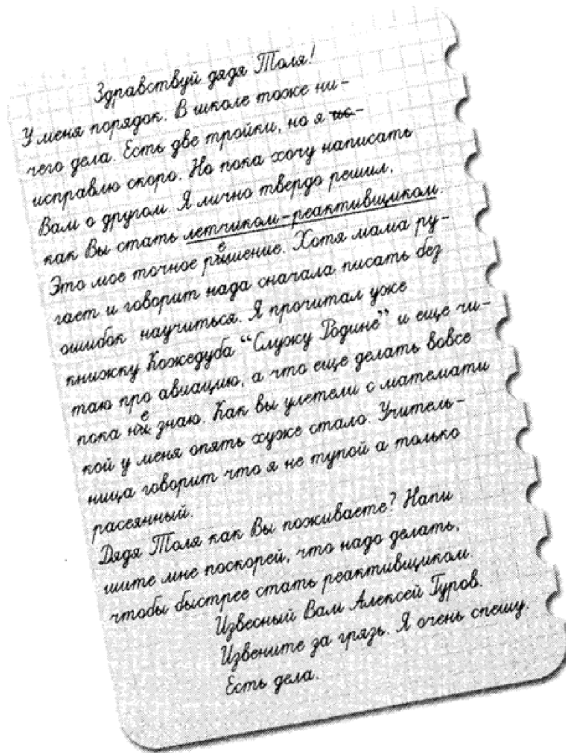 Здравствуй дядя Толя!
У меня порядок. В школе тоже ни-
чего дела. Есть две тройки, но я ис-
исправлю скоро. Но пока хочу написать
Вам о другом. Я лично твердо решил,
как Вы стать летчиком-реактивщиком.
Это мое точное решение. Хотя мама ру-
гает и говорит нада сначала писать без
ошибок научиться. Я прочитал уже
книжку Кожедуба “Служу Родине” и еще чи-
таю про авиацию, а что еще делать вовсе
пока не знаю. Как вы улетели с математи
кой у меня опять хуже стало. Учитель-
ница говорит что я не тупой а только
расеянный.
Дядя Толя как Вы поживаете? Напи
шите мне поскорей, что надо делать,
чтобы быстрее стать реактивщиком.
Извесный Вам Алексей Гуров.
Извените за грязь. Я очень спешу.
Есть дела.